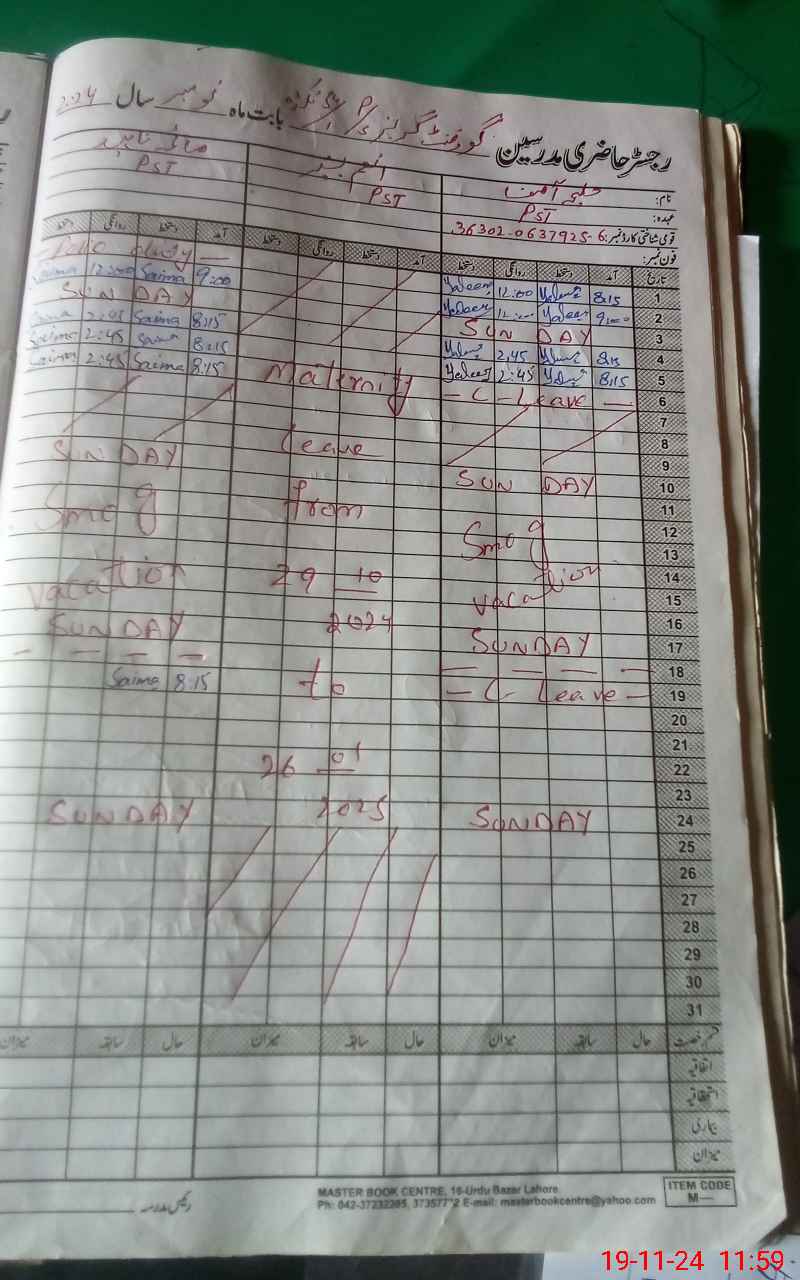 رجسٹر حاضری مدرسین گورنمنٹ گرلز P/S بابت ماہ نومبر سال 2024
نام: آصف انعم صائمہ ناہید
عہدہ: PST PST PST
قومی شناختی کارڈ نمبر: 36302-0637925-6
فون نمبر:
تاریخ آمد دستخط روانگی دستخط آمد دستخط روانگی دستخط آمد دستخط روانگی دستخط
1 8:15 12:00 Polio duty —
2 9:00 12:00 9:00 Saima 12:00 Saima
3 SUN DAY SUN DAY
4 8:15 2:45 8:15 Saima 2:45 Saima
5 8:15 2:45 8:15 Saima 2:45 Saima
6 — C - Leave — Maternity 8:15 Saima 2:45 Saima
7
8
9 Leave SUN DAY
10 SUN DAY
11 from Smog
12 Smog
13
14 vacation 29 10 vacation
15
16 2024 SUNDAY
17 SUNDAY
18 — — — — — — — —
19 — C- Leave — to 8:15 Saima
20
21
22 26 01
23 2025
24 SUNDAY SUNDAY
25
26
27
28
29
30
31
قسم رخصت حال سابقہ میزان حال سابقہ میزان حال سابقہ میزان
اتفاقیہ
استحقاقیہ
بیماری
میزان
رئیس مدرسہ
MASTER BOOK CENTRE, 16-Urdu Bazar Lahore.
Ph: 042-37232205, 37357772 E-mail: masterbookcentre@yahoo.com
ITEM CODE
M—
19-11-24 11:59